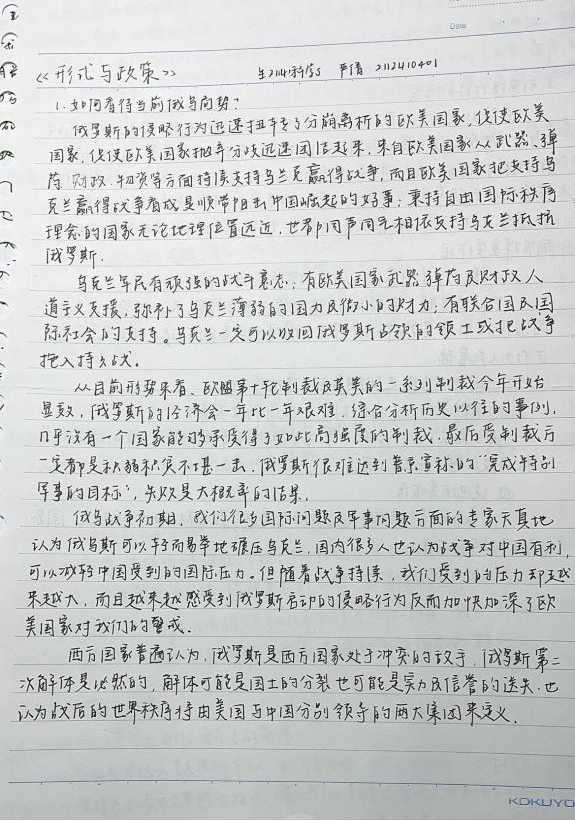 Date
《形式与政策》 生科 严倩 2112410401
1.如何看待当前俄乌局势?
俄罗斯的侵略行为迅速扭转了分崩离析的欧美国家,促使欧美
国家,促使欧美国家抛弃分歧迅速团结起来,来自欧美国家从武器、弹
药、财政、物资等方面持续支持乌克兰赢得战争,而且欧美国家把支持乌
克兰赢得战争看成是顺带阻击中国崛起的好事;秉持自由国际秩序
理念的国家无论地理位置远近,也都同声同气相依支持乌克兰抵抗
俄罗斯.
乌克兰军民有顽强的战斗意志,有欧美国家武器弹药及财政人
道主义支援,弥补了乌克兰薄弱的国力及微小的财力;有联合国及国
际社会的支持。乌克兰一定可以收回俄罗斯占领的领土或把战争
拖入持久战.
从目前形势来看、欧盟第十轮制裁及英美的一系列制裁今年开始
显效,俄罗斯的经济会一年比一年艰难.综合分析历史以往的事例,
几乎没有一个国家能够承受得了如此高强度的制裁.最后受制裁方
一定都是积弱积贫不堪一击.俄罗斯很难达到普京宣称的“完成特别
军事的目标”,失败是大概率的结果.
俄乌战争初期,我们很多国际问题及军事问题方面的专家天真地
认为俄乌斯可以轻而易举地碾压乌克兰,国内很多人也认为战争对中国有利,
可以减轻中国受到的国际压力。但随着战争持续,我们受到的压力却越
来越大,而且越来越感受到俄罗斯启动的侵略行为反而加快加深了欧
美国家对我们的警戒.
西方国家普遍认为,俄罗斯是西方国家处于冲突的敌手,俄罗斯第二
次解体是必然的,解体可能是国土的分裂也可能是实力及信誉的迷失.也
认为战后的世界秩序将由美国与中国分别领导的两大集团来定义.
KOKUYO